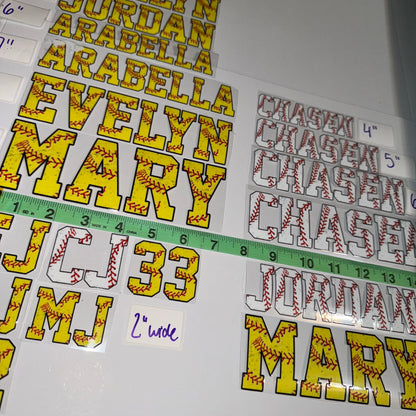 6"
7"
EVELYN
JORDAN
ARABELLA
ARABELLA
EVELYN
MARY
CHASEN
4"
CHASEN
5"
CHASEN
6
CHASEN
1 2 3 4 5 6 7 8 9 10 11 12 13 14
CJ
33
MJ
2" wide
JORDAN
MARY